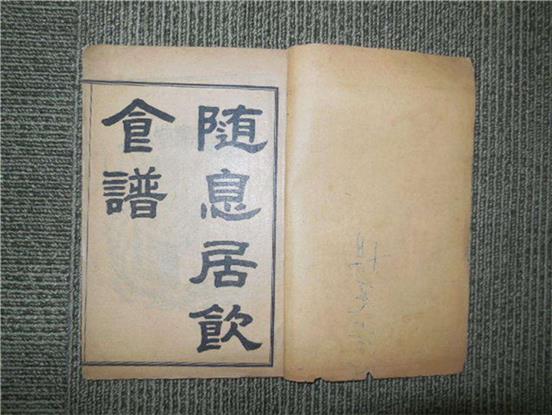 随息居飲
食譜